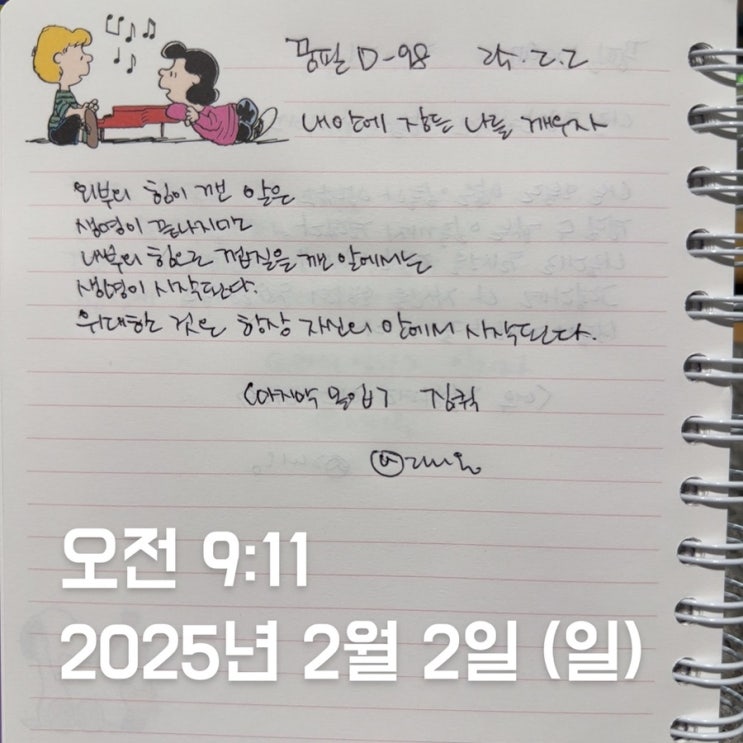 꿈필 D-98 25. 2. 2
내 안에 잠든 나를 깨우자
외부의 힘이 깬 알은
생명이 끝나지만
내부의 힘으로 껍질을 깬 알에서는
생명이 시작된다.
위대한 것은 항상 자신의 안에서 시작된다.
<마지막 몰입> 짐퀵
오전 9:11
2025년 2월 2일 (일)